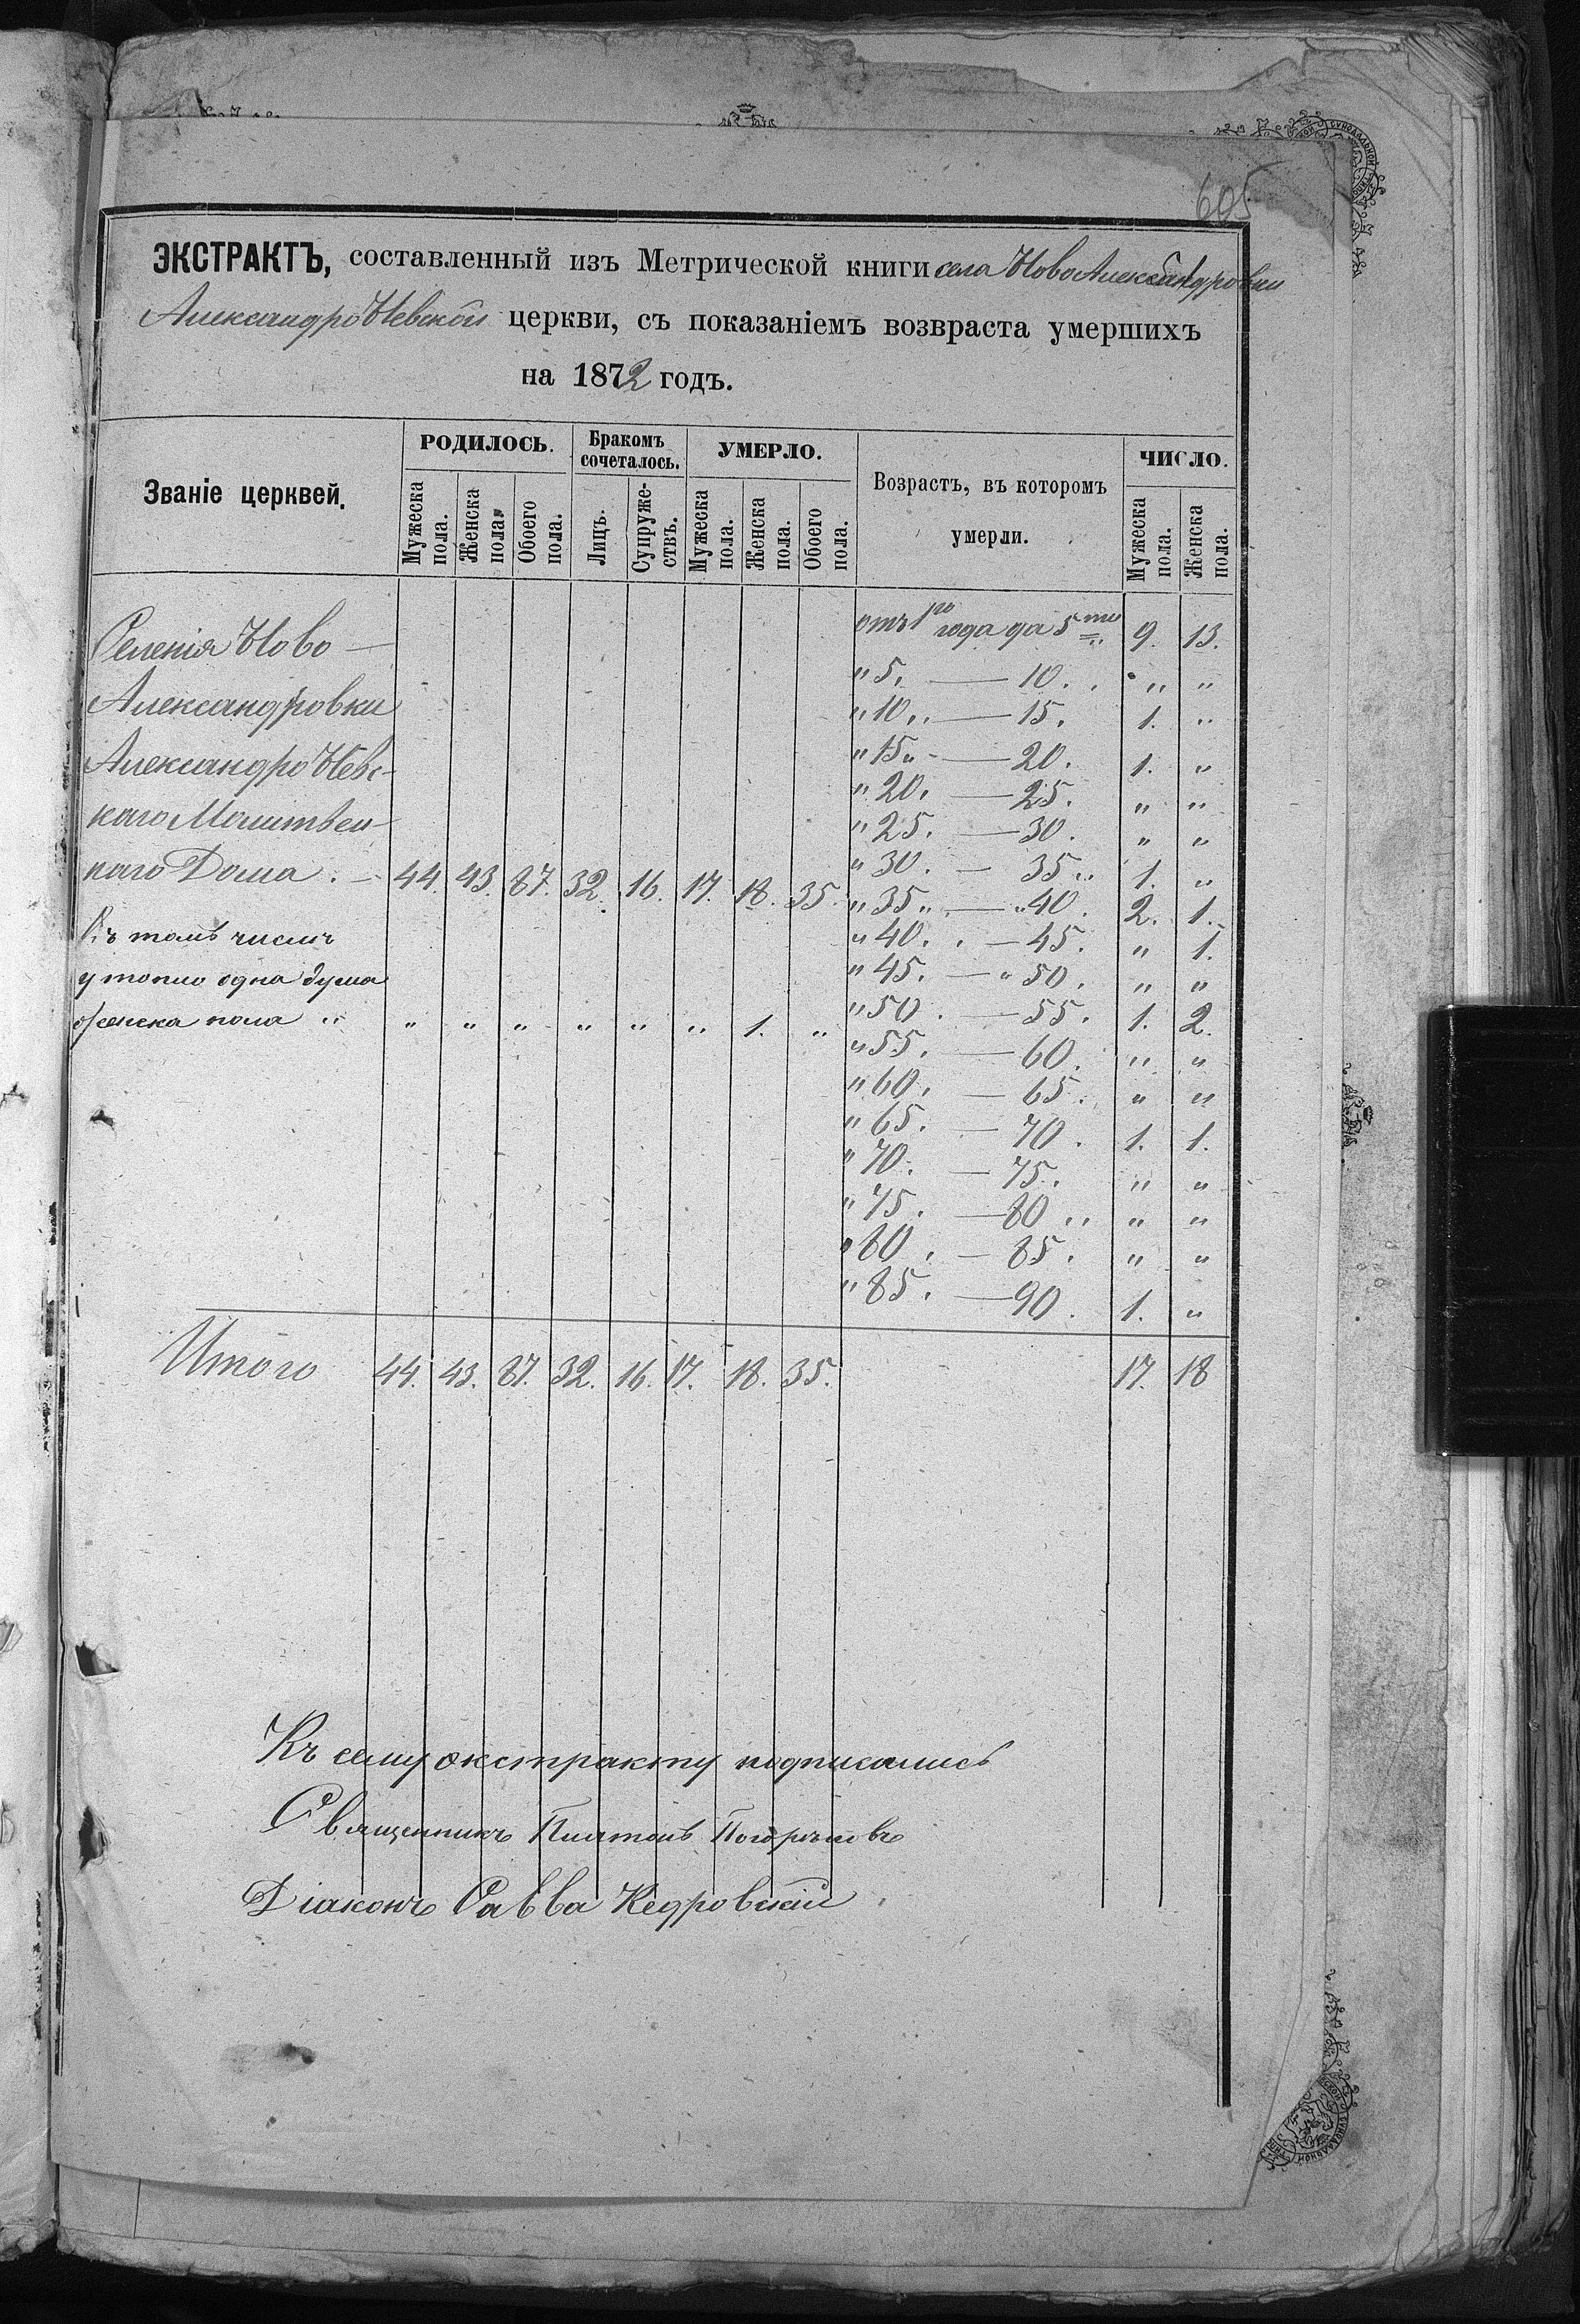 605
ЭКСТРАКТЪ, составленный изъ Метрической книги села НовоАлександровки
АлександроНевской церкви, съ показаніемъ возвраста умершихъ
на 1872 годъ.
Званіе церквей.
РОДИЛОСЬ.
Мужеска пола.
Женска пола.
Обоего пола.
Бракомъ сочеталось.
Лицъ.
Супружествъ.
УМЕРЛО.
Мужеска пола.
Женска пола.
Обоего пола.
Возрастъ, въ которомъ
умерли.
ЧИСЛО.
Мужеска пола.
Женска пола.
Селенія Ново-
Александровки
АлександроНевс-
каго Молитвен-
наго Дома . - 44. 43. 87. 32. 16. 17. 18. 35.
Въ томъ числѣ
утопло одна душа
женска пола " " " " " " " 1. "
отъ 1го года да 5ти 9. 13.
" 5. — 10. " "
" 10. — 15. 1. "
" 15 — 20. 1. "
" 20. — 25. " "
" 25. — 30. " "
" 30. — 35. 1. "
" 35 " — " 40. 2. 1.
" 40. — 45. " 1.
" 45. — " 50. " "
" 50. — 55. 1. 2.
" 55. — 60. " "
" 60. — 65. " "
" 65. — 70. 1. 1.
" 70. — 75. " "
" 75. — 80 " "
" 80. — 85. " "
" 85. — 90. 1. "
Итого 44. 43. 87. 32. 16. 17. 18. 35. 17. 18
Къ сему экстракту подписались
Священникъ Платонъ Погорѣловъ
Діаконъ Савва Кедровскій
СУНОДАЛЬНОЙ